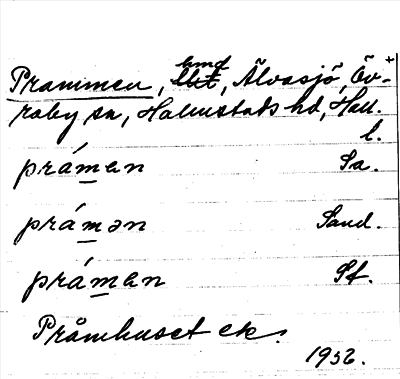 Prammen, hmd, Älvasjö, Öv-
raby sn, Halmstads hd, Hall.
l.
práman Sa.
prámən Sand.
práman Sf.
Pråmhuset ek.
1952.